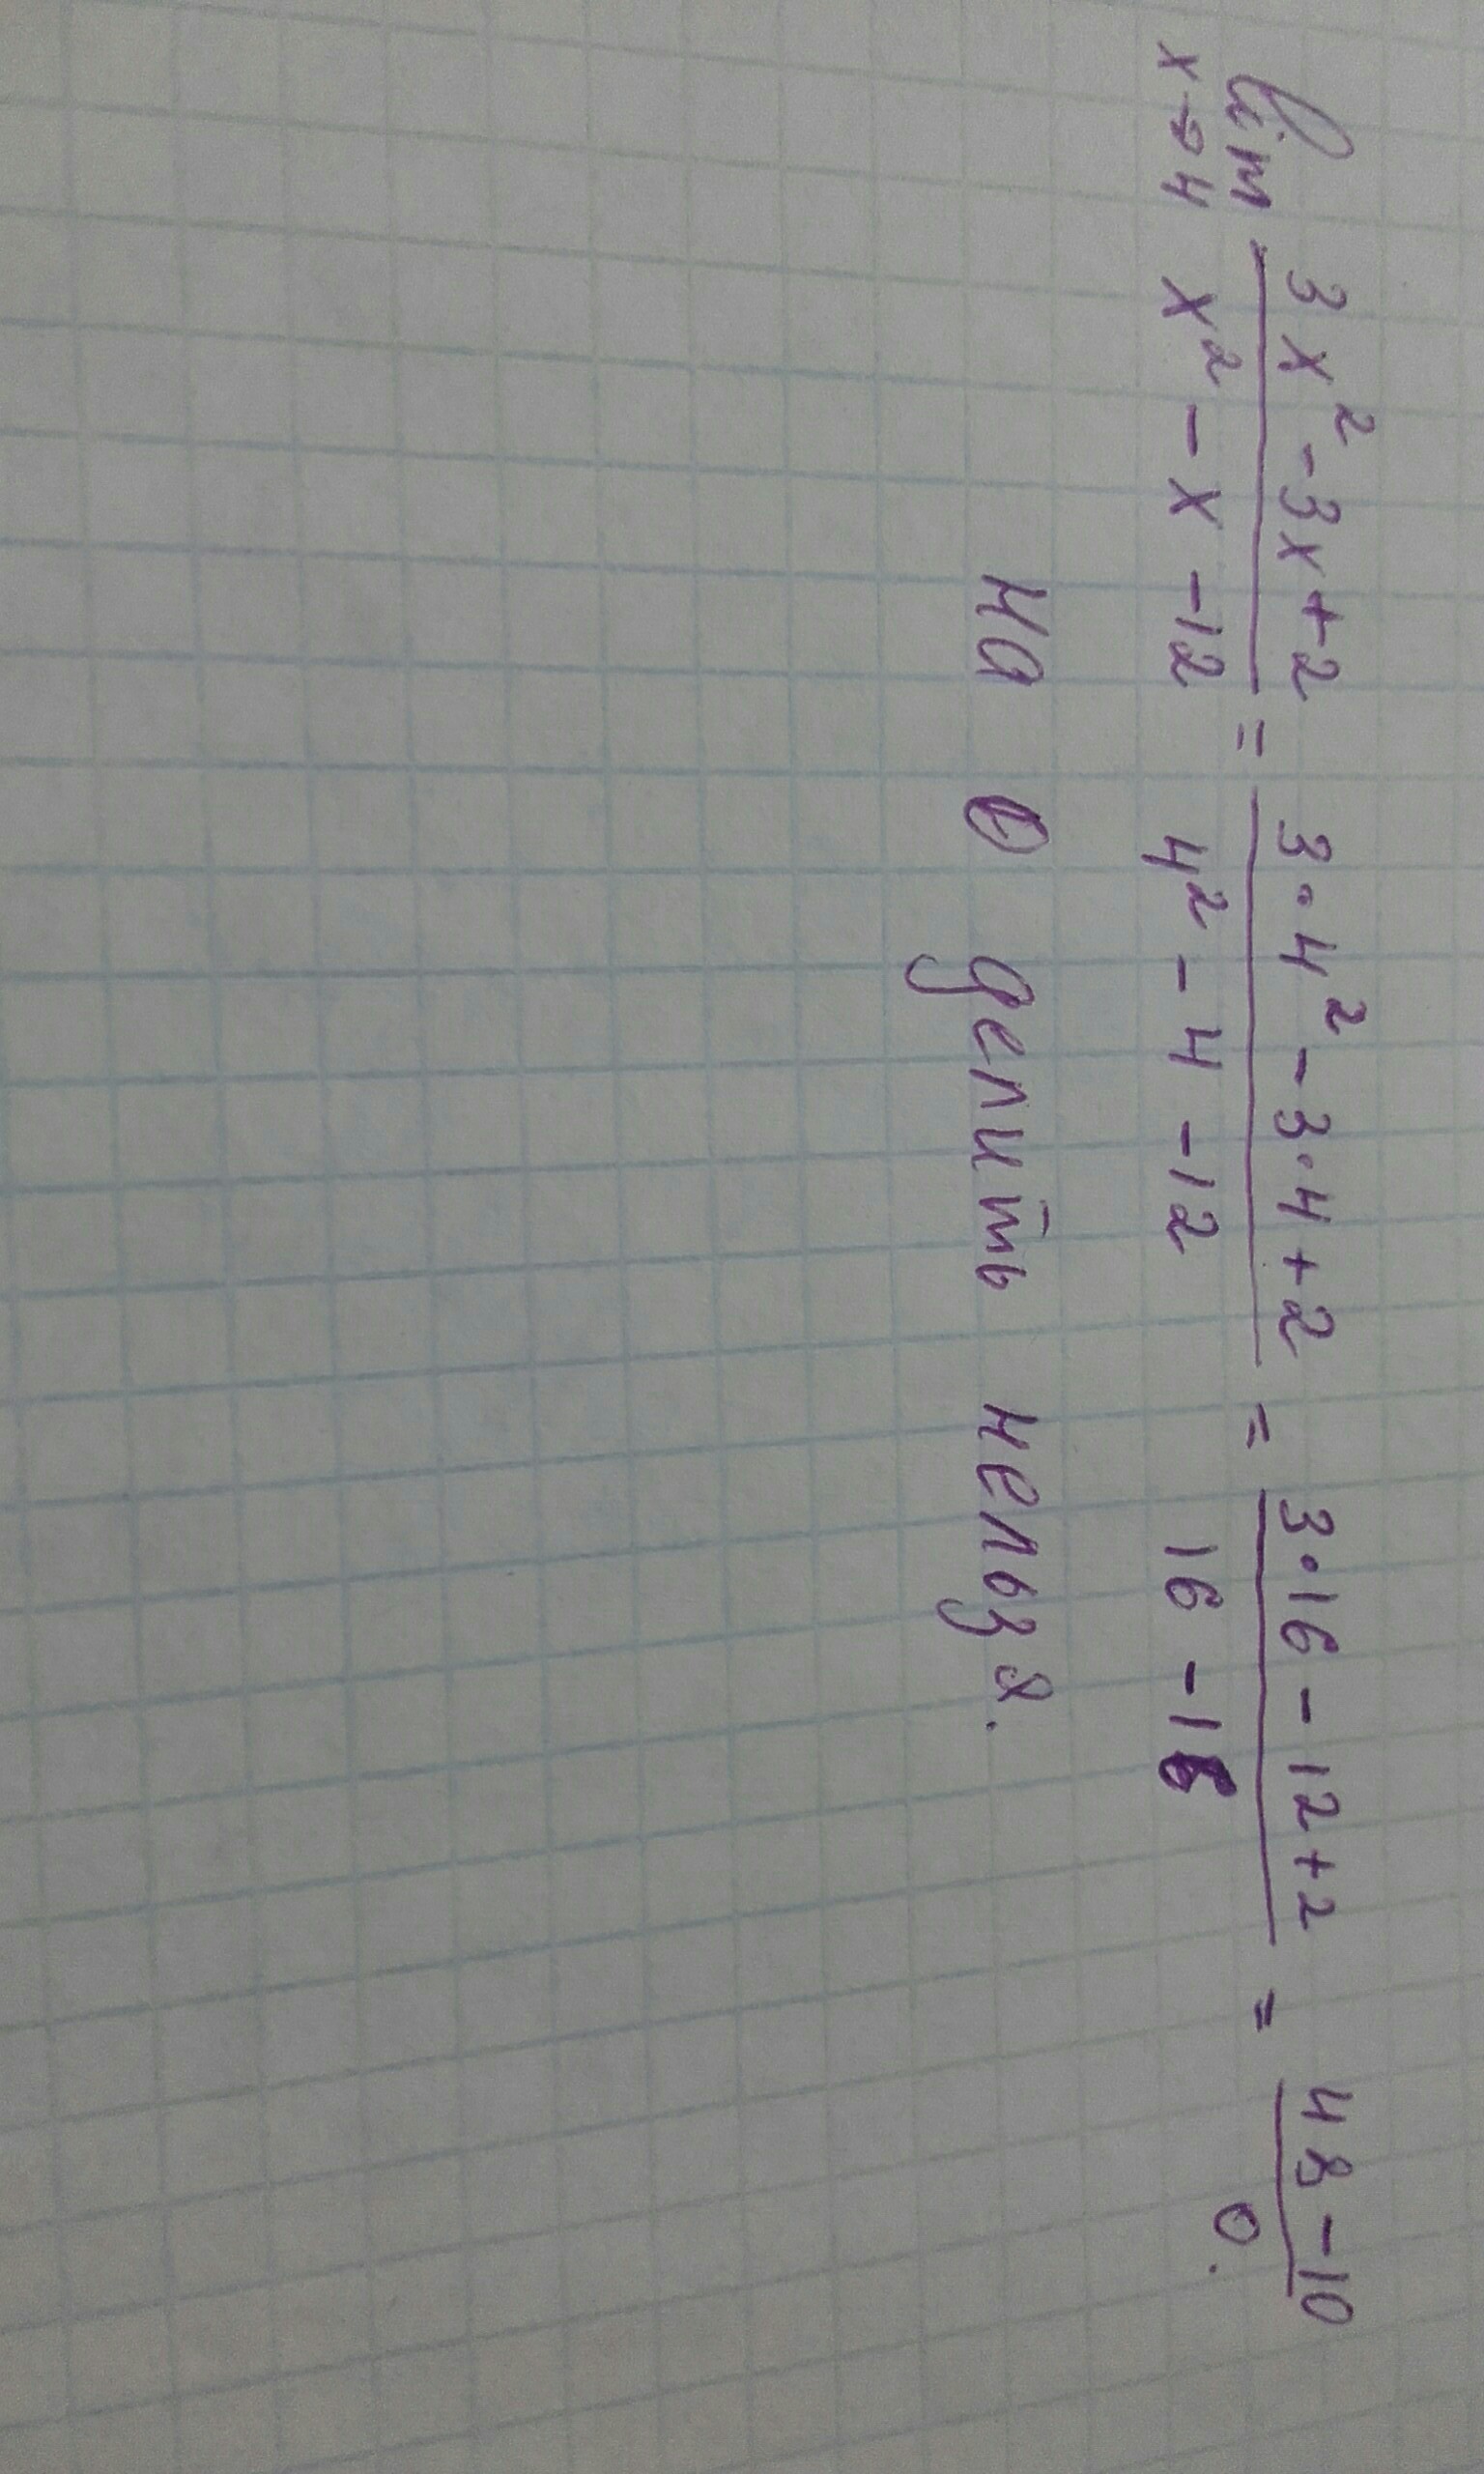 lim x→4 (3x² - 3x + 2)/(x² - x - 12) = (3·4² - 3·4 + 2)/(4² - 4 - 12) = (3·16 - 12 + 2)/(16 - 16) = (48 - 10)/0.
на 0 делить нельзя.